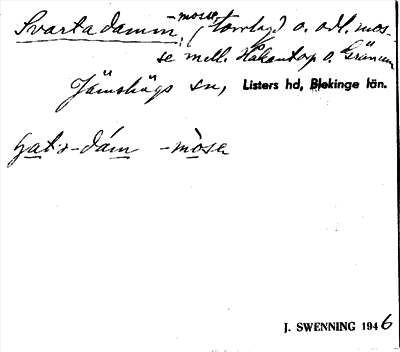 Svarta damm, -mosse (torrlagd o. odl. mos-
se mell. Håkantorp o. Gränum
Jämshögs sn, Listers hd, Blekinge län.
-dám -mòse
J. SWENNING 1946